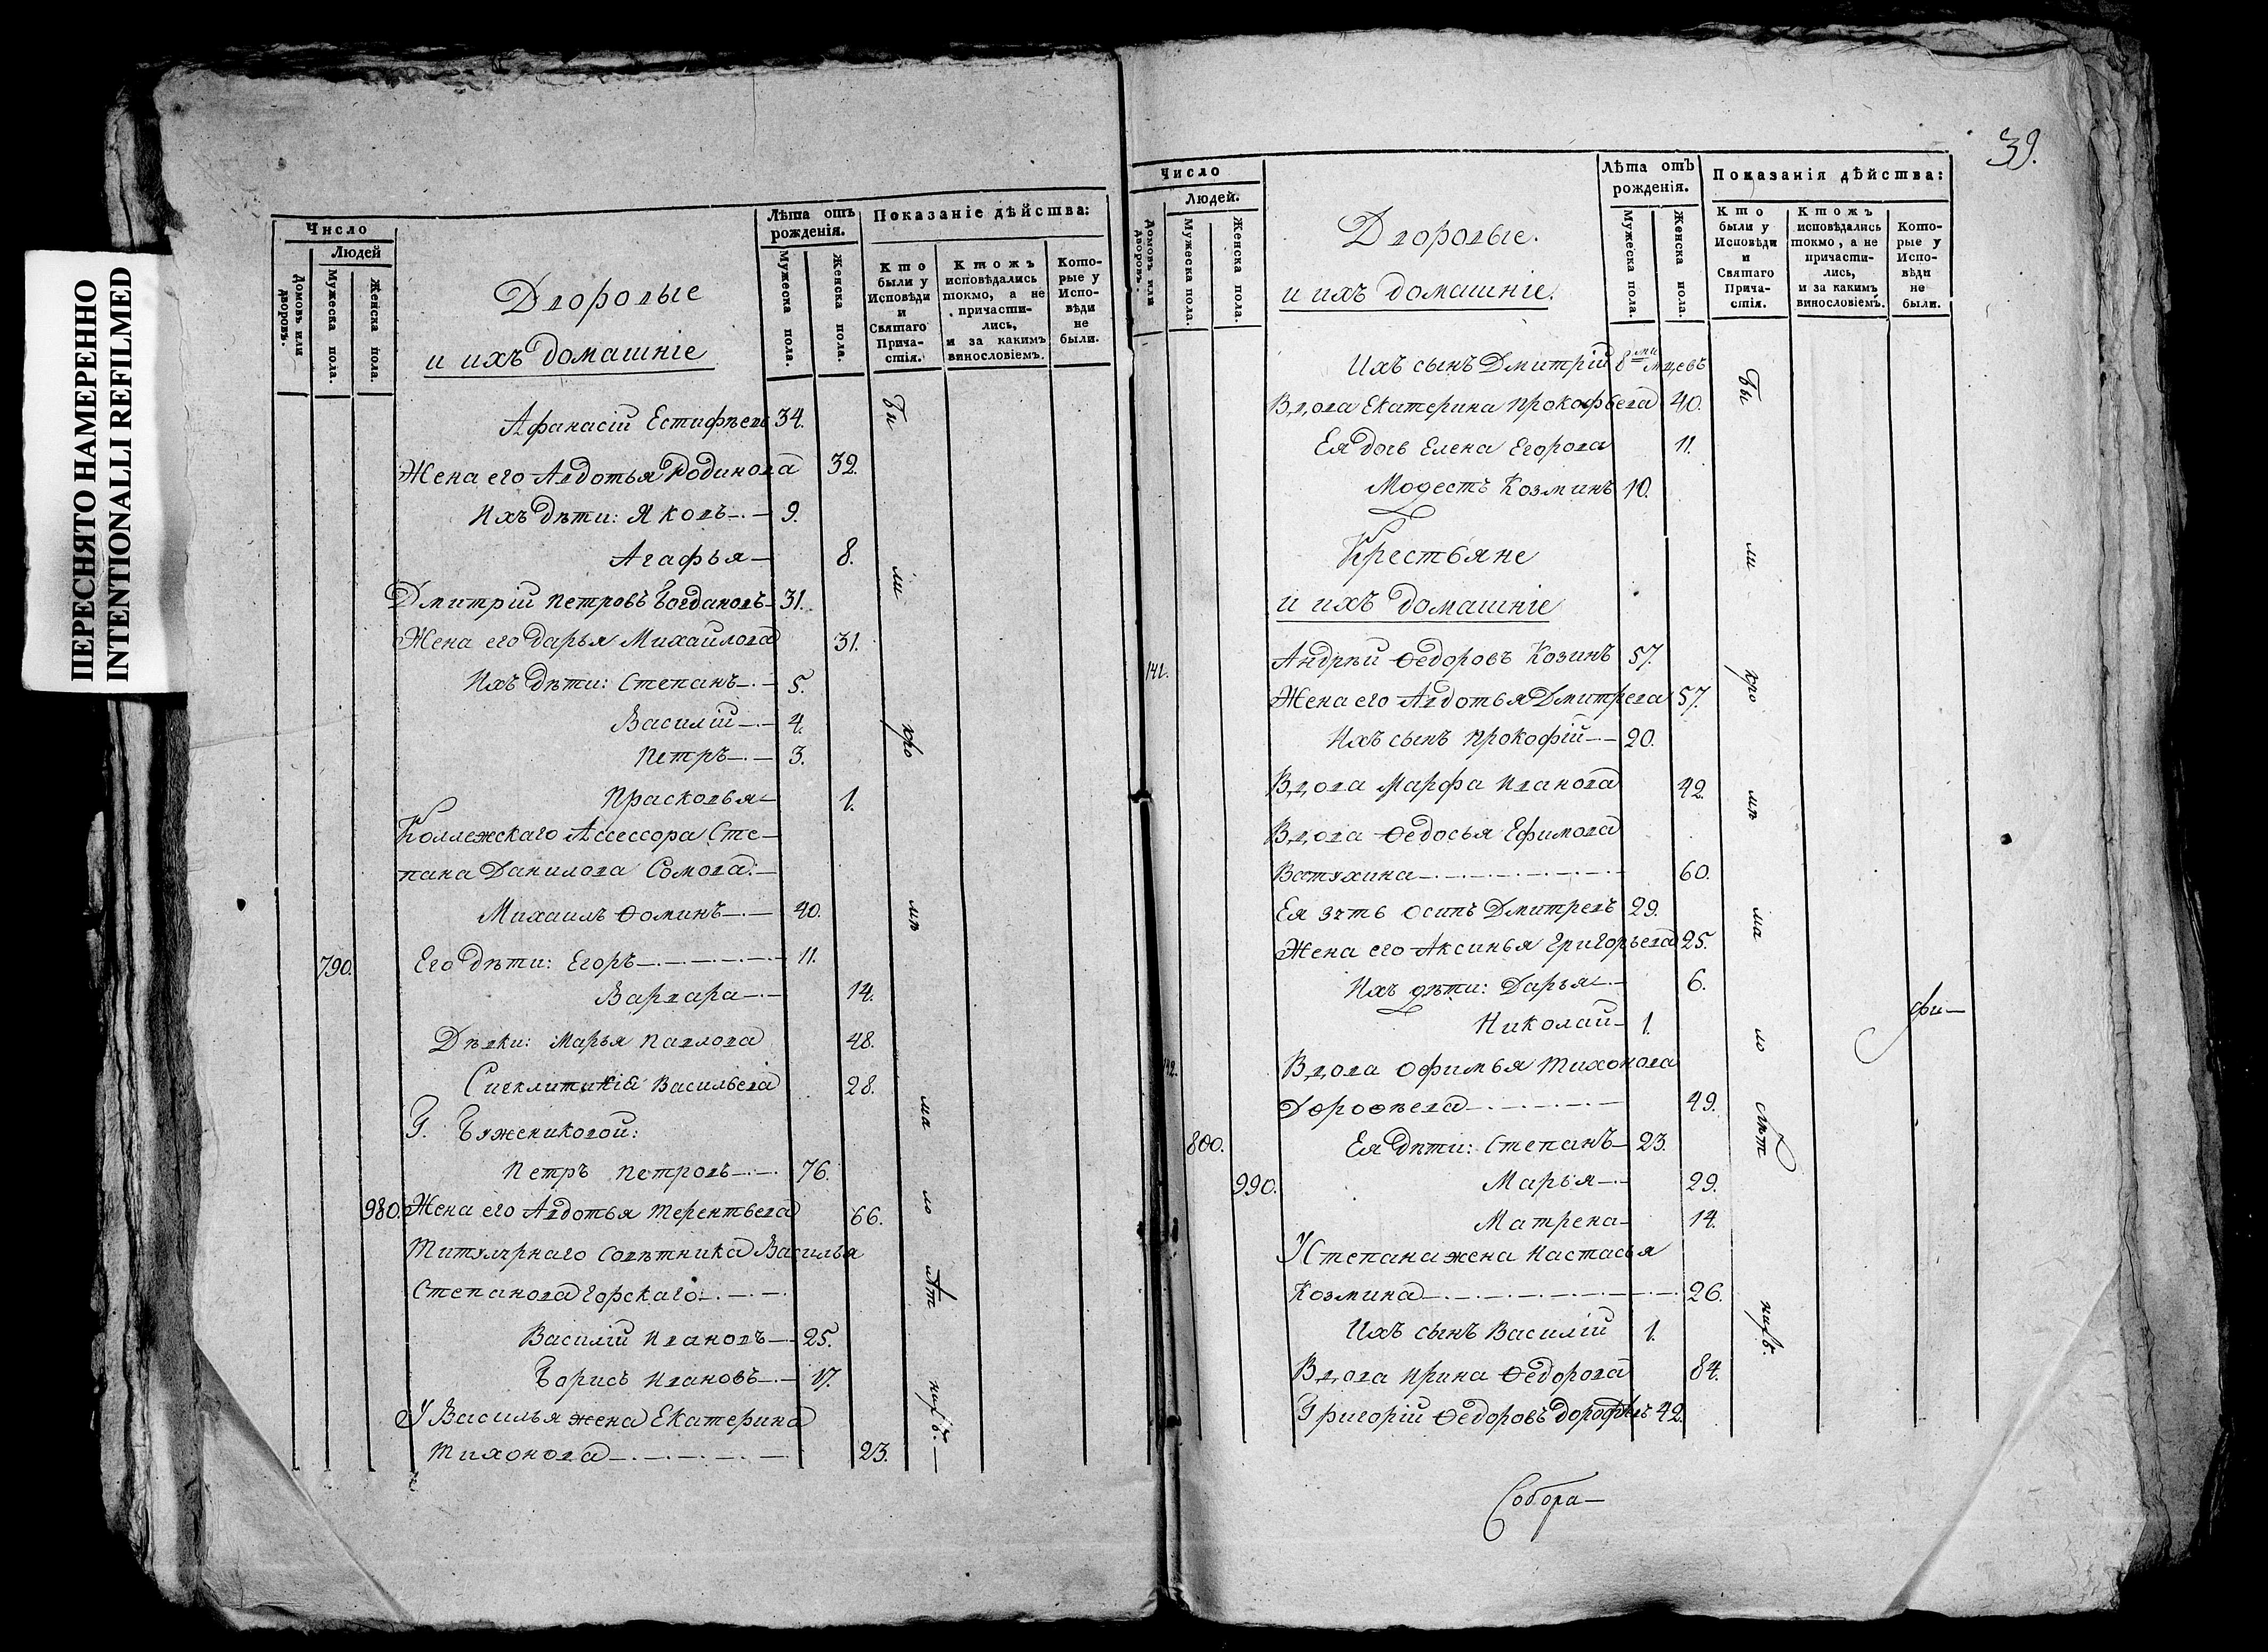 ПЕРЕСНЯТО НАМЕРЕННО
INTENTIONALLI REFILMED
Число
Людей
Домовъ или дворовъ.
Мужеска пола.
Женска пола.
Дворовые
и ихъ домашніе
Лѣта отъ рожденія.
Мужеска пола.
Женска пола.
Показаніе дѣйства:
Кто были у Исповѣди и Святаго Прича-стія.
Ктожъ исповѣдались токмо, а не причасти-лись, и за какимъ винословіемъ.
Кото-рые у Испо-вѣди не были.
Афанасій Естифѣевъ 34.
Жена его Авдотья Родинова 32.
Ихъ дѣти: Яковъ 9.
Агафья 8.
Дмитрій Петровъ Богдановъ 31.
Жена его Дарья Михайлова 31.
Ихъ дѣти: Степанъ 5.
Василій 4.
Петръ 3.
Прасковья 1.
Коллежскаго Ассессора Сте-
пана Данилова Сомова:
Михаилъ Ѳоминъ 40.
790. Его дѣти: Егоръ 11.
Варвара 14.
Дѣвки: Марья Павлова 48.
Васильева 28.
Г. Бужениковой:
Петръ Петровъ 76.
980. Жена его Авдотья Терентьева 66.
Титулярнаго Совѣтника Василья
Степанова Горскаго:
Василій Ивановъ 25.
Борисъ Ивановъ 17.
У Василья жена Екатерина
Тихонова 23.
39.
Число
Людей.
Домовъ или дворовъ.
Мужеска пола.
Женска пола.
Дворовые.
и ихъ домашніе.
Лѣта отъ рожденія.
Мужеска пола.
Женска пола.
Показанія дѣйства:
Кто были у Исповѣди и Святаго Прича-стія.
Ктожъ исповѣдались токмо, а не причасти-лись, и за какимъ винословіемъ.
Кото-рые у Испо-вѣди не были.
Ихъ сынъ Дмитрій 8ми мцевъ
Вдова Екатерина Прокофьева 40.
Ея дочь Елена Егорова 11.
Модестъ Козминъ 10.
Крестьяне
и ихъ домашніе
141. Андрѣй Ѳедоровъ Козинъ 57.
Жена его Авдотья Дмитрева 57.
Ихъ сынъ Прокофій 20.
Вдова Марфа Иванова 42.
Вдова Ѳедосья Ефимова
Ватухина 60.
Ея зять Осипъ Дмитревъ 29.
Жена его Аксинья Григорьева 25.
Ихъ дѣти: Дарья 6.
Николай 1.
142. Вдова Офимья Тихонова
Дороѳѣева 49.
800. Ея дѣти: Степанъ 23.
990. Марья 29.
Матрена 14.
У Степана жена Настасья
Козмина 26.
Ихъ сынъ Василій 1.
Вдова Ирина Ѳедорова 84.
Григорій Ѳедоровъ Дорофѣевъ 42.
Собора-